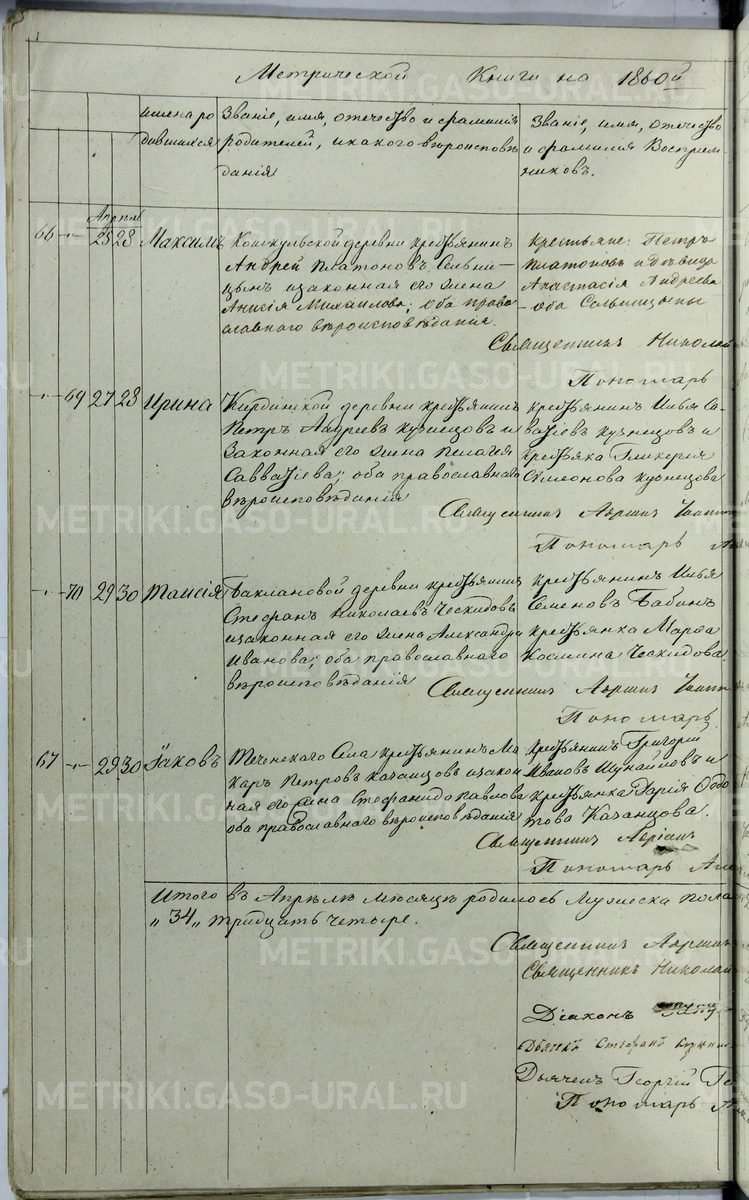 Метрической Книги на 1860й
имена родившихся
Званіе, имя, отчество и фамилія
родителей, и какого вѣроисповѣ
данія
Званіе, имя, отчество
и фамилія Воспріем
никовъ.
Апрѣль
66 23 28 Максимъ
Кошкульской деревни крестьянинъ
Андрей Платоновъ
и законная его жена
Анисія Михаилова; оба право
славнаго вѣроисповѣданія.
Крестьяне: Петръ
Платоновъ и дѣвица
Анастасія Андреева
оба
Священникъ Николай
Пономарь
69 27 28 Ирина
деревни крестьянинъ
Петръ Андреевъ Кузнецовъ и
Законная его жена Пелагея
Савватіева; оба православнаго
вѣроисповѣданія
крестьянинъ Илья Са-
ватіевъ Кузнецовъ и
крестьянка Гликерія
Симеонова Кузнецова
Священникъ
Пономарь
70 29 30 Таисія
Баклановой деревни крестьянинъ
Стефанъ Николаевъ Ческидовъ
и законная его жена Александра
Иванова; оба православнаго
вѣроисповѣданія
крестьянинъ Илья
Семеновъ Бабинъ
крестьянка Марѳа
Космина Ческидова
Священникъ
Пономарь
67 29 30 Іаковъ
Теченскаго Села крестьянинъ Ма
каръ Петровъ Качанцовъ и закон
ная его жена Стефанида Павлова
оба православнаго вѣроисповѣданія
крестьянинъ Григорій
Ивановъ Шумайловъ и
крестьянка Дарія Ѳедо
това Качанцова.
Священникъ
Пономарь
Итого въ Апрѣлѣ мѣсяцѣ родилось Мужеска пола
„34„ тридцать четыре.
Священникъ
Священникъ Николай
Діаконъ
Дьячекъ Стефанъ
Дьячекъ Георгій
Пономарь
METRIKI.GASO-URAL.RU